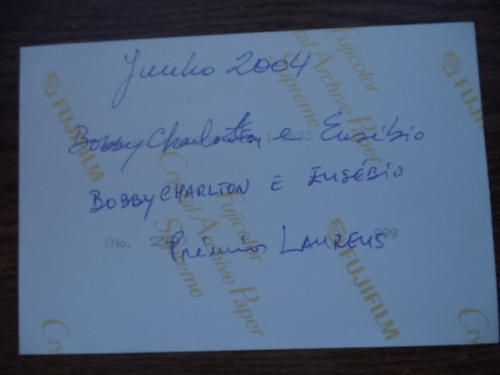 Junho 2004
Bobby Charlton e Eusébio
BOBBY CHARLTON E EUSÉBIO
Prémios LAUREUS
(No.
FUJIFILM
Crystal Archive Paper
Supreme
Fujicolor
Crystal Archive Paper
Supreme
Fujicolor
FUJIFILM
FUJIFILM